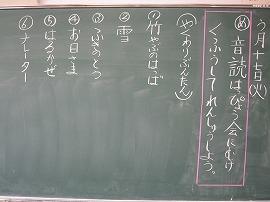 四月十七日(火)
め 音読はっぴょう会にむけ
くふうしてれんしゅうしよう。
(やくわりぶんたん)
①竹やぶのはっぱ
②雪
③ふきのとう
④お日さま
⑤はるかぜ
⑥ナレーター